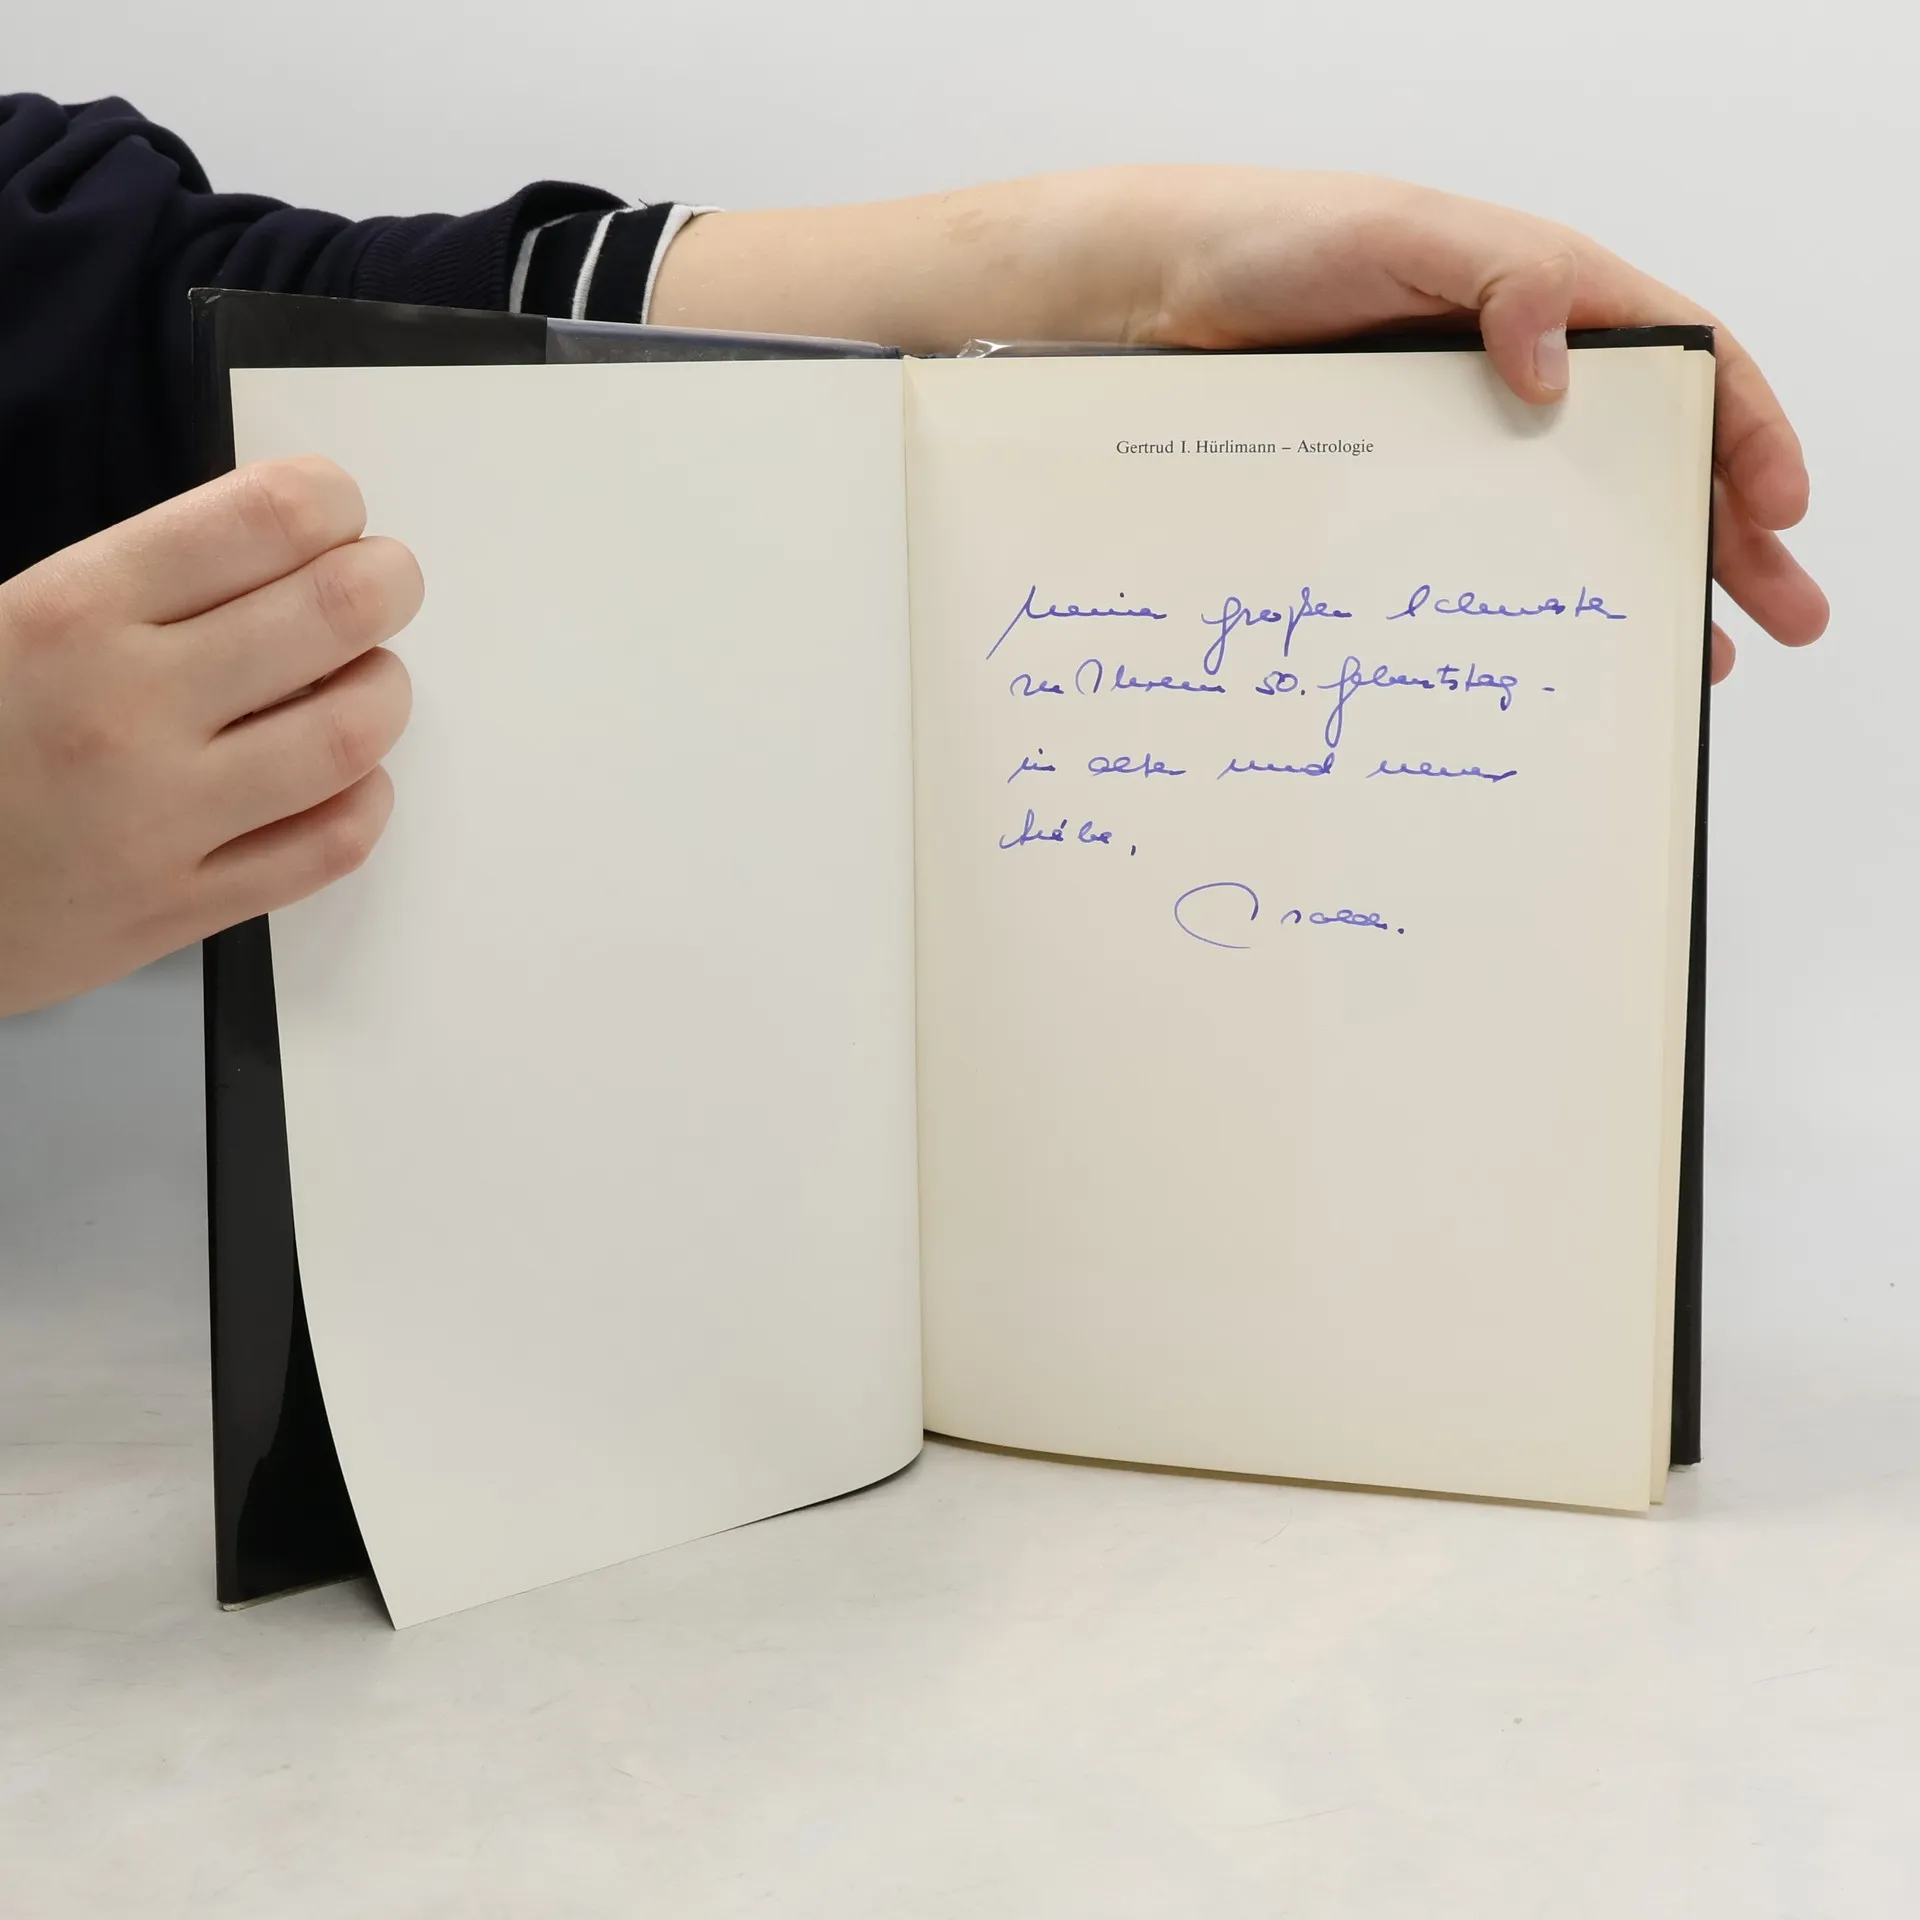 Gertrud I. Hürlimann – Astrologie
Meiner großen Schwester
zu Ihrem 50. Geburtstag -
in alter und neuer
Liebe,